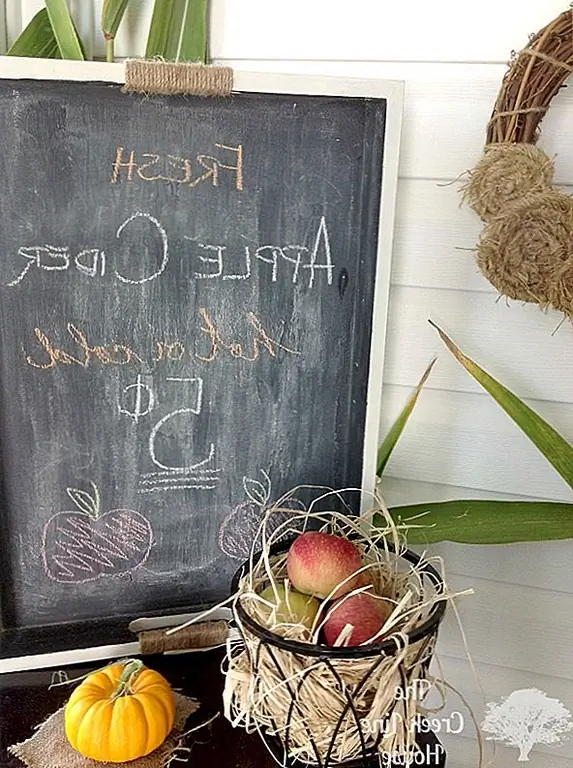 FRESH
APPLE CIDER
hot or cold
5¢
The
Creek Line
House